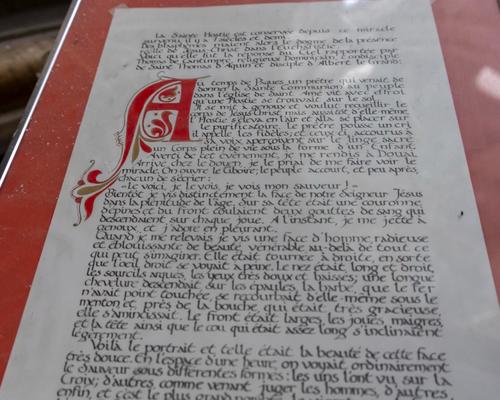 La Sainte Hostie est conservée depuis ce miracle
survenu il y a 7 siècles et demi.
Des blasphèmes niaient alors le dogme de la présence
réelle de Jésus Christ dans l'Eucharistie.
Voici quelle fut la réponse du Ciel rapportée par
Thomas de Cantimpré, religieux Dominicain, condisciple
de Saint Thomas d'Aquin et disciple d'Albert le Grand:
Au temps de Pâques un prêtre qui venait de
donner la Sainte Communion au peuple
dans l'église de Saint Amé vit avec effroi
qu'une Hostie se trouvait sur le sol.
Il se mit à genoux et voulut recueillir le
corps de Jésus Christ, mais aussitôt d'elle même
l'Hostie s'éleva en l'air et alla se placer sur
le purificatoire. Le prêtre pousse un cri
il appelle les fidèles; et ceux ci accourus à
sa voix aperçoivent sur le linge sacré
un Corps plein de vie sous la forme d'un Enfant.
Averti de cet évènement, je me rendis à Douai.
Arrivé chez le doyen, je le priai de me faire voir le
miracle. On ouvre le Ciboire; le peuple accourt, et peu après,
chacun de s'écrier:
-Le voici, je le vois, je vois mon sauveur! -
Bientôt je vis distinctement la face de notre Seigneur Jésus
dans la plénitude de l'âge. Sur sa tête était une couronne
d'épines et du front coulaient deux gouttes de sang qui
descendaient sur chaque joue. A l'instant, je me jette à
genoux, et j'adore en pleurant.
Quand je me relevais je vis une face d'homme, radieuse
et éblouissante de beauté, vénérable au-delà de tout ce
qui peut s'imaginer. Elle était tournée à droite, en sorte
que l'oeil droit se voyait à peine. Le nez était long et droit,
les sourcils arqués, les yeux très doux et baissés; une longue
chevelure descendait sur les épaules, la barbe, que le fer
n'avait point touchée, se recourbait d'elle-même sous le
menton et, près de la bouche, qui était très gracieuse,
elle s'amincissait. Le front était large, les joues, maigres,
et la tête ainsi que le cou qui était assez long s'inclinaient
légèrement.
Voilà le portrait et telle était la beauté de cette face
très douce. En l'espace d'une heure, on voyait ordinairement
le Sauveur sous différentes formes: les uns l'ont vu sur la
Croix; d'autres comme venant juger les hommes, d'autres
enfin, et c'est le plus grand nombre